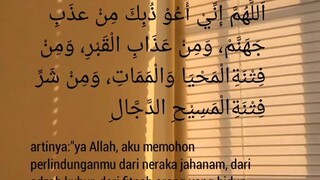 اَللَّهُمَّ إِنِّي أَعُوْ ذُبِكَ مِنْ عَذَبِ
جَهَنَّمْ، وَمِنْ عَذَابِ الْقَبْرِ، وَمِنْ
فِتْنَةِالْمَحْيَا وَالْمَمَاتِ، وَمِنْ شَرِّ
فِتْنَةِالْمَسِيْحِ الدَّجَّالِ
artinya:"ya Allah, aku memohon
perlindunganmu dari neraka jahanam, dari